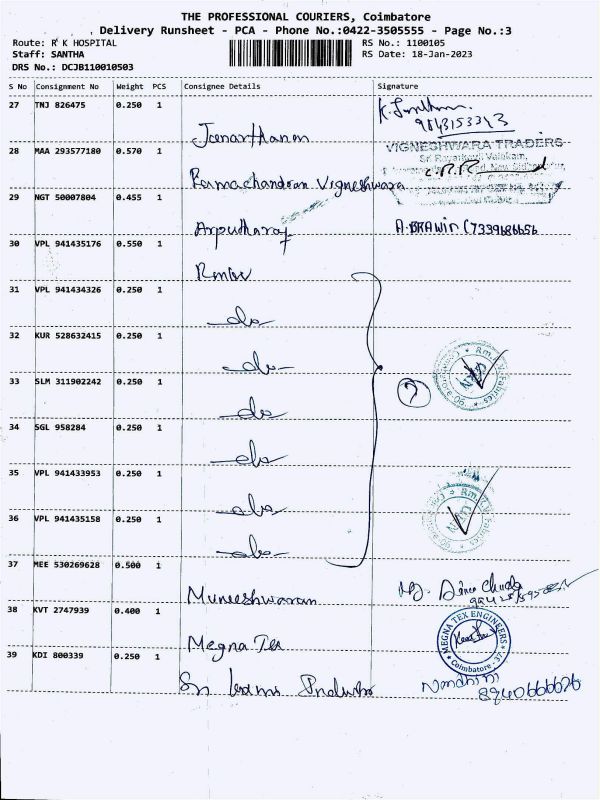 THE PROFESSIONAL COURIERS, Coimbatore
Delivery Runsheet - PCA - Phone No.:0422-3505555 - Page No.:3
Route: R K HOSPITAL
RS No.: 1100105
Staff: SANTHA
RS Date: 18-Jan-2023
DRS No.: DCJB110010503
S No Consignment No Weight PCS Consignee Details Signature
27 TNJ 826475 0.250 1
Janarthanan
28 MAA 293577180 0.570 1
VIGNESHWARA TRADERS
Ramachandran Vigneshwara
29 NGT 50007804 0.455 1
Arputharaj A. BRAWIN (7339686656
30 VPL 941435176 0.550 1
31 VPL 941434326 0.250 1
do
32 KUR 528632415 0.250 1
do
33 SLM 311902242 0.250 1
do
34 SGL 958284 0.250 1
do
35 VPL 941433953 0.250 1
do
36 VPL 941435158 0.250 1
do
7
37 MEE 530269628 0.500 1
Muneeshwaran
38 KVT 2747939 0.400 1
Megna Tex
MEGNA TEX ENGINEERS
Coimbatore - 37
39 KDI 800339 0.250 1
Nandhini
8940666626